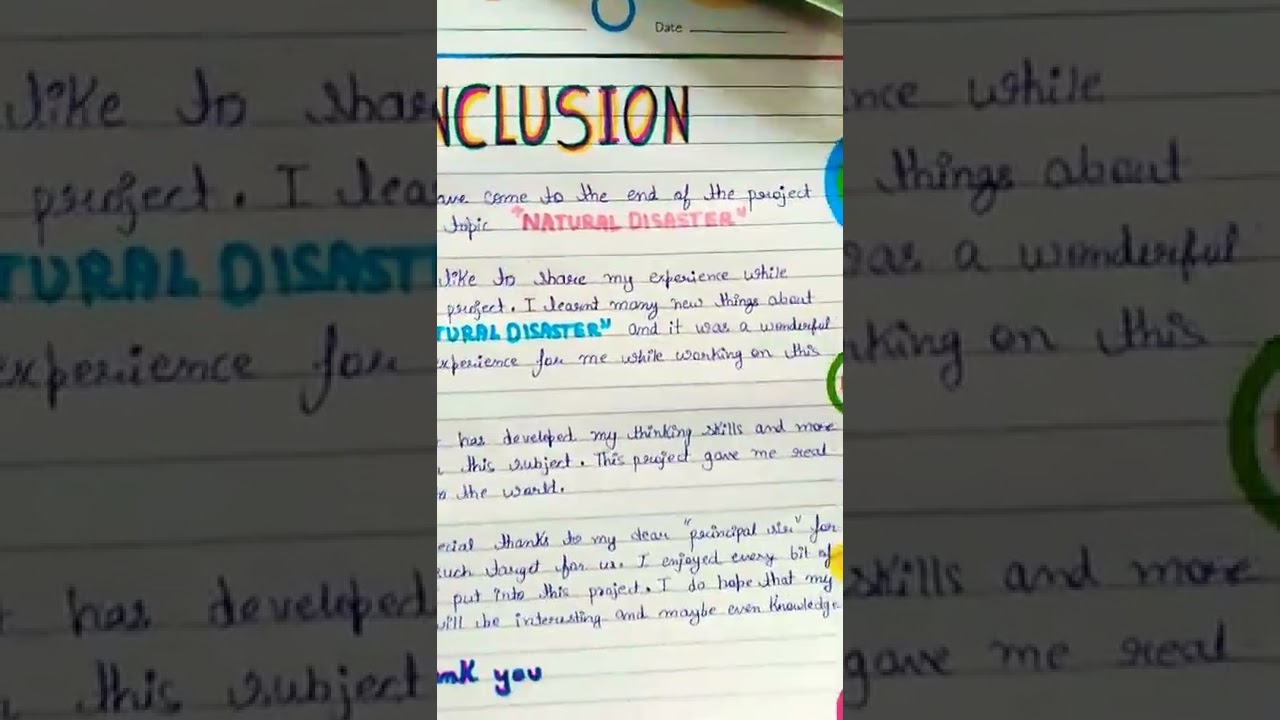 Date
NCLUSION
ave come to the end of the project
topic "NATURAL DISASTER"
like to share my experience while
project. I learnt many new things about
TURAL DISASTER" and it was a wonderful
experience for me while working on this
has developed my thinking skills and more
this subject. This project gave me real
the world.
ecial thanks to my dear "principal sir" for
such target for us. I enjoyed every bit of
put into this project. I do hope that my
will be interesting and maybe even knowledge
ank you